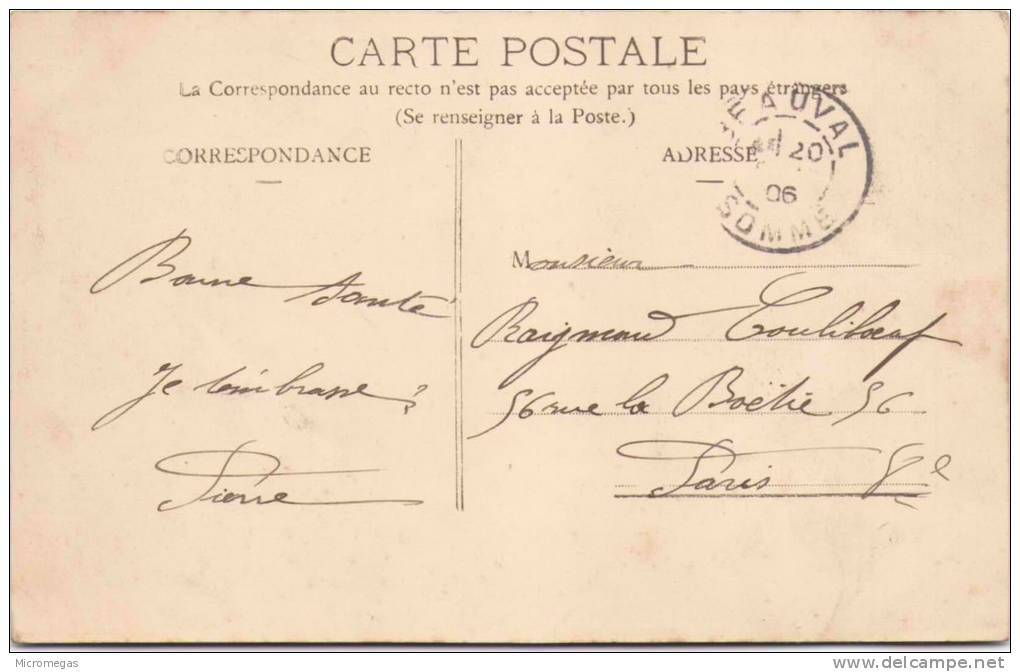 CARTE POSTALE
La Correspondance au recto n'est pas acceptée par tous les pays étrangers
(Se renseigner à la Poste.)
CORRESPONDANCE
ADRESSE
BEAUVAL
20
06
SOMME
Bonne santé
Je t'embrasse
Pierre
Monsieur
Raigmond
56 rue la Boëtie 56
Paris 8e
Micromegas
www.delcampe.net